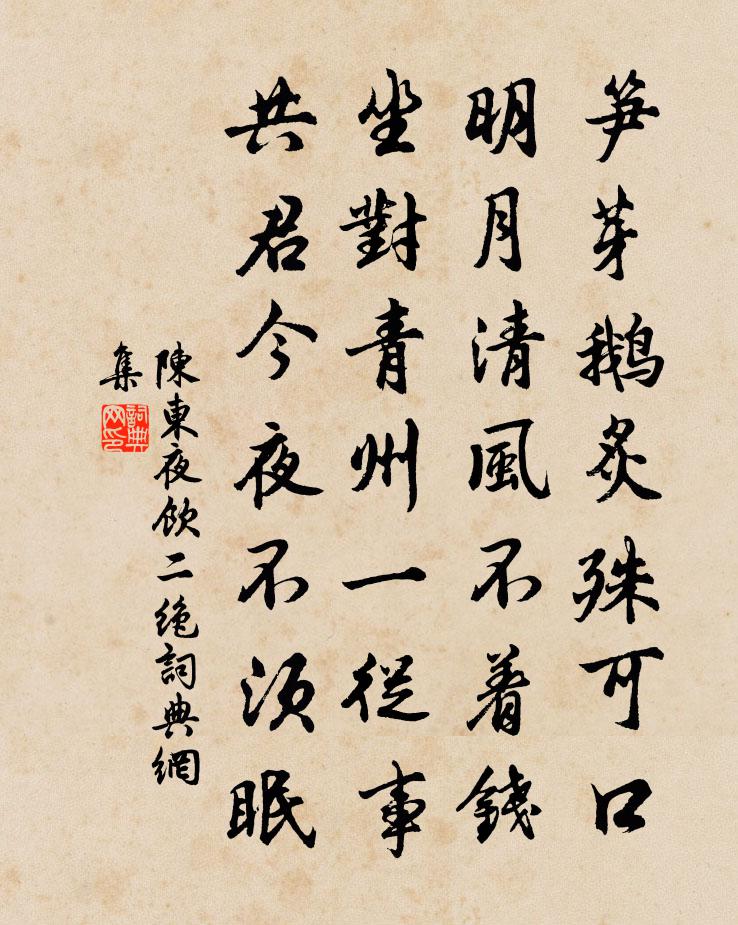 笋芽鹅炙殊可口
明月清風不着錢
坐對青州一從事
共君今夜不須眠
陳東夜飲二絶詞典網
集
詞典
网印